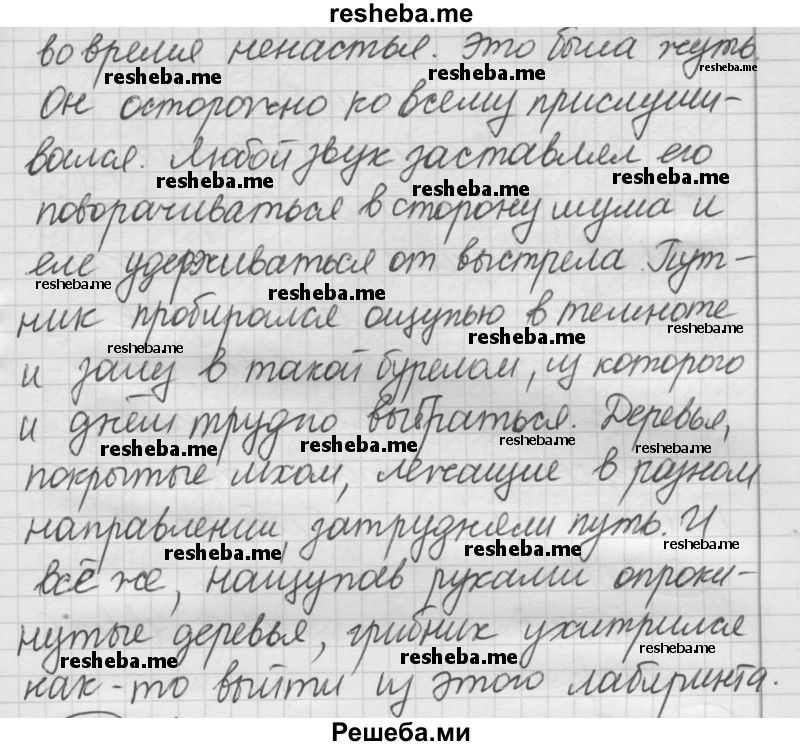 resheba.me
во время ненастья. Это была жуть.
resheba.me resheba.me resheba.me
Он осторожно ко всему прислуши-
вался. Любой звук заставлял его
resheba.me resheba.me resheba.me
поворачиваться в сторону шума и
еле удерживаться от выстрела. Пут-
resheba.me resheba.me
ник пробирался ощупью в темноте
resheba.me resheba.me
и залез в такой бурелом, из которого
и днём трудно выбраться. Деревья,
resheba.me resheba.me resheba.me resheba.me
покрытые мхом, лежащие в разном
направлении, затрудняли путь. И
resheba.me resheba.me resheba.me
всё же, нащупав руками опроки-
нутые деревья, грибник ухитрился
resheba.me resheba.me resheba.me
как-то выйти из этого лабиринта.
Решеба.ми